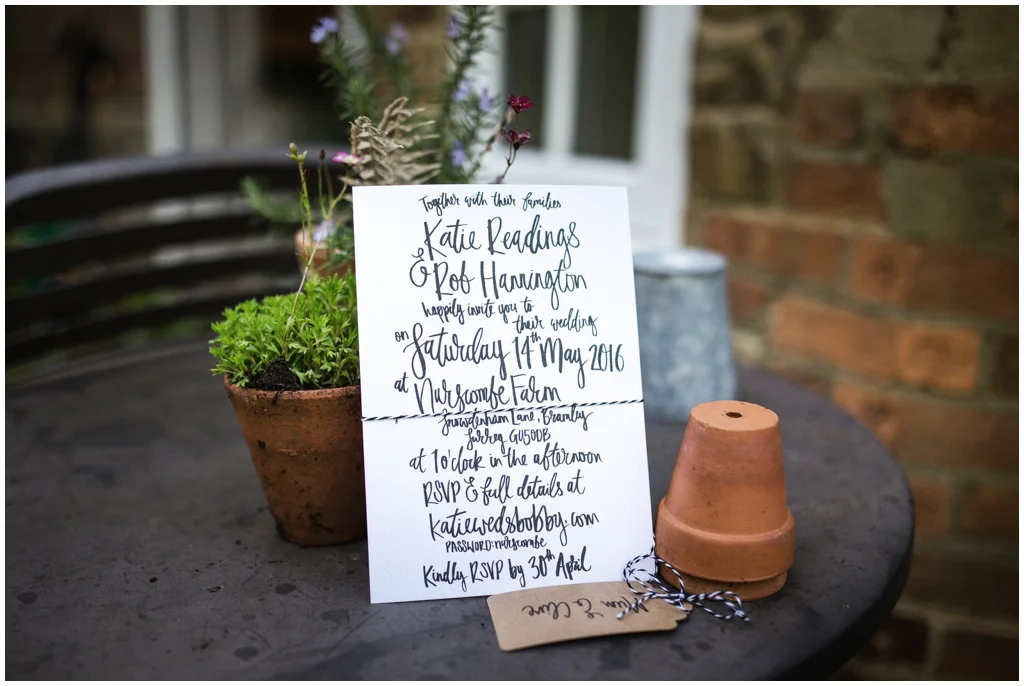 Together with their families
Katie Readings
& Rob Hannington
happily invite you to
their wedding
on Saturday 14th May 2016
at Nurscombe Farm
Snowdenham Lane, Bramley
Surrey GU50DB
at 1 o'clock in the afternoon
RSVP & full details at
katiewedsbobby.com
PASSWORD: nurscombe
Kindly RSVP by 30th April
Mum & Clive